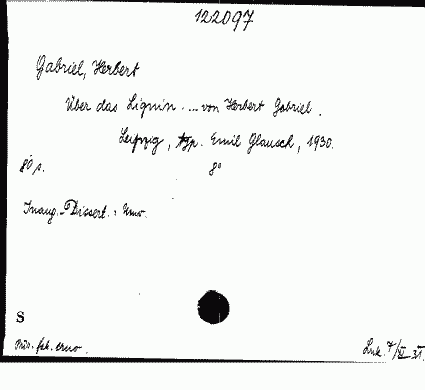 122097
Gabriel, Herbert
Über das Lignin .... von Herbert Gabriel.
Leipzig, typ. Emil Glausch, 1930.
80 s. 8°
Inaug.-Dissert. : Univ.
S